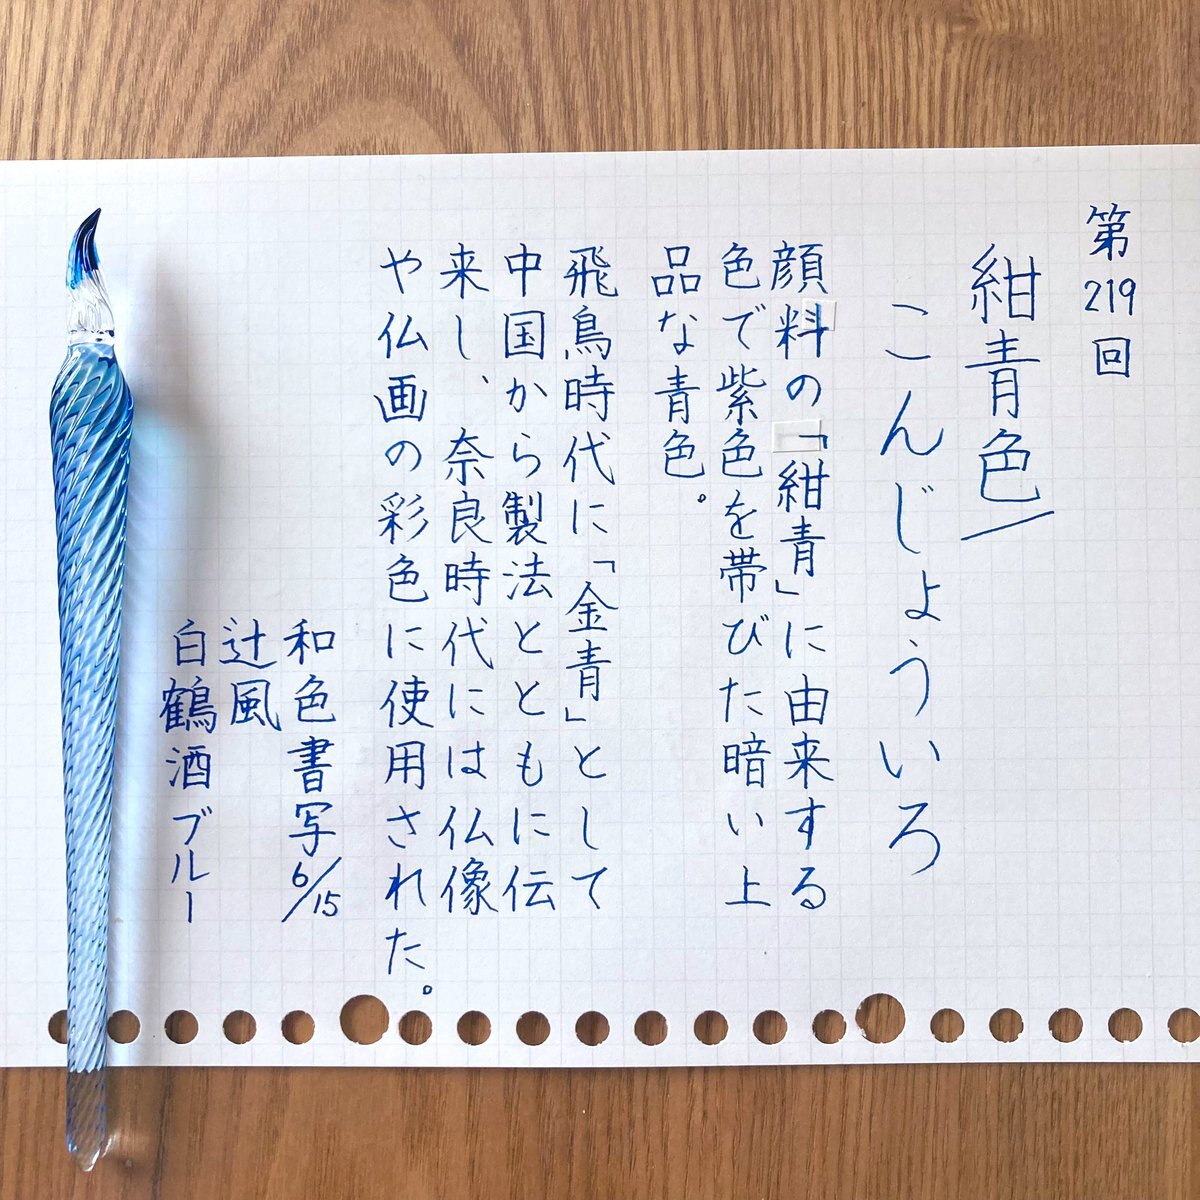 第219回
紺青色
こんじょういろ
顔料の「紺青」に由来する
色で紫色を帯びた暗い上
品な青色。
飛鳥時代に「金青」として
中国から製法とともに伝
来し、奈良時代には仏像
や仏画の彩色に使用された。
和色書写6/15
辻風
白鶴酒ブルー